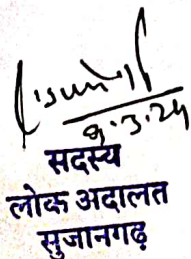 9.3.24
सदस्य
लोक अदालत
सुजानगढ़